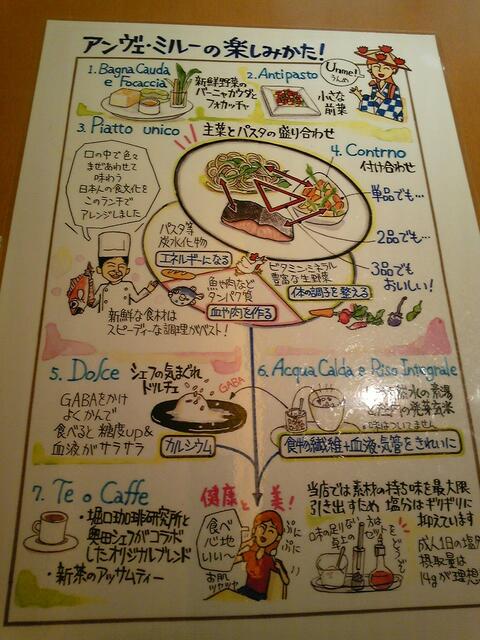 アンヴェ・ミルーの楽しみかた!
Unme!
うんめ
1. Bagna Cauda
e Focaccia
新鮮野菜の
バーニャカウダと
フォカッチャ
2. Antipasto
小さな
前菜
3. Piatto unico
主菜とパスタの盛り合わせ
4. Contrno
付け合わせ
口の中で色々
まぜあわせて
味わう
日本人の食文化を
このランチで
アレンジしました
単品でも…
2品でも…
3品でも
おいしい!
パスタ等
炭水化物
エネルギーになる
魚や肉など
タンパク質
血や肉を作る
ビタミン・ミネラル
豊富な生野菜
体の調子を整える
新鮮な食材は
スピーディーな調理がベスト!
5. Dolce
シェフの気まぐれ
ドルチェ
GABAをかけ
よくかんで
食べると糖度UP&
血液がサラサラ
GABA
カルシウム
6. Acqua Calda e Riso Integrale
の素湯
の発芽玄米
味はついてません
食物繊維+血液・気管をきれいに
7. Te o Caffe
・堀口珈琲研究所と
奥田シェフがコラボ
したオリジナルブレンド
・新茶のアッサムティー
健康と美!
食べ
心地
いい〜
ぷに
ぷに
お肌
ツヤツヤ
当店では素材の持ち味を最大限
引き出すため塩分はギリギリに
抑えています
味の足りない
方は
卓上の
セットを
どうぞ
成人1日の塩分
摂取量は
14gが理想